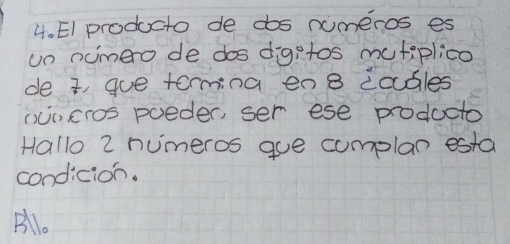 4. El producto de dos números es
un número de dos digitos mutiplico
de 7, que termina en 8 ¿cuáles
números pueden ser ese producto
Hallo 2 números que cumplan esta
condición.
R//.